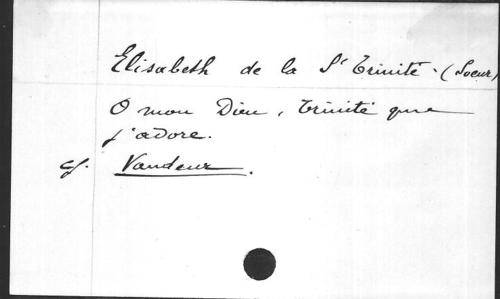 Elisabeth de la Ste Trinité. (Soeur)
O mon Dieu, Trinité que
j'adore.
cf. Vandeur.